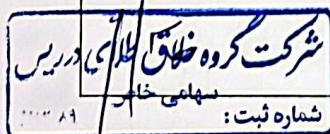 شرکت گروه خلاق طلایی درریس
سهامی خاص
شماره ثبت: